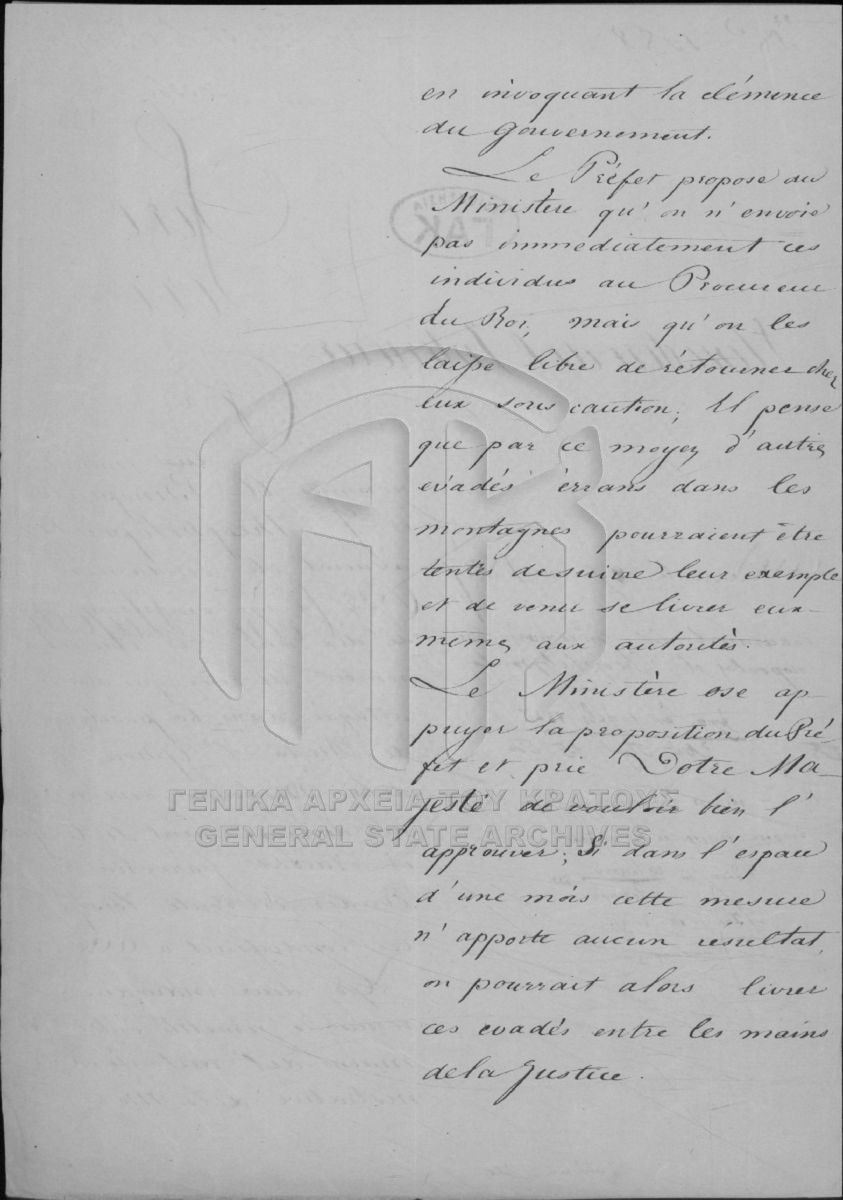 en invoquant la clémence
du Gouvernement.
Le Préfet propose au
Ministère qu'on n'envoie
pas immédiatement ces
individus au Procureur
du Roi, mais qu'on les
laisse libre de rétourner chez
eux sous caution; Il pense
que par ce moyen d'autres
evadés èrrans dans les
montagnes pourraient être
tentés de suivre leur exemple
et de venir se livrer eux-
mêmes aux autorités.
Le Ministère ose ap-
puyer la proposition du Pré-
fet et prie Votre Ma-
jesté de vouloir bien l'
approuver; Si dans l'espace
d'une mois cette mesure
n'apporte aucun résultat,
on pourrait alors livrer
ces evadés entre les mains
de la Justice.
ΓΑΚ
ΓΕΝΙΚΑ ΑΡΧΕΙΑ ΤΟΥ ΚΡΑΤΟΥΣ
GENERAL STATE ARCHIVES